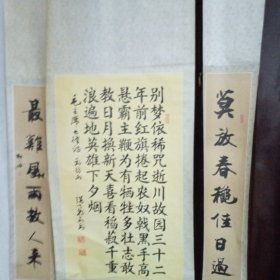 莫放春穐佳日過
别梦依稀咒逝川故园三十二
年前红旗捲起农奴戟黑手高
悬霸主鞭为有牺牲多壮志敢
教日月撳新天喜看稻菽千重
浪遍地英雄下夕烟
毛主席七律诗
最難風雨故人来